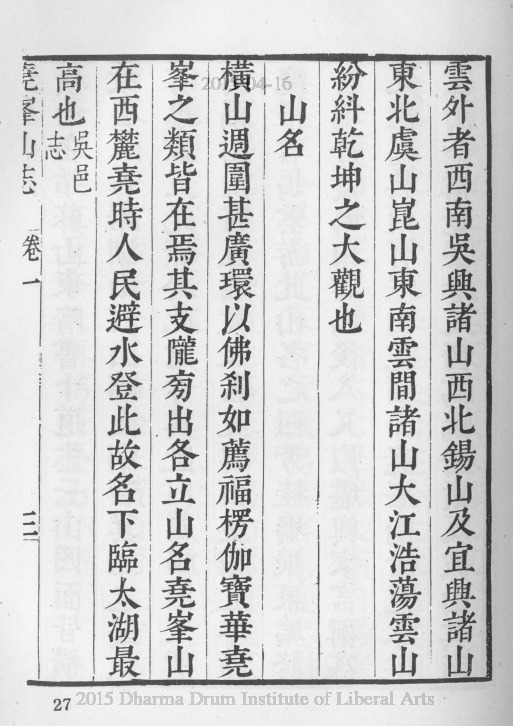 雲外者西南吳興諸山西北錫山及宜興諸山
東北虞山崑山東南雲間諸山大江浩蕩雲山
紛糾乾坤之大觀也
山名
橫山週圍甚廣環以佛刹如薦福楞伽寶華堯
峯之類皆在焉其支隴旁出各立山名堯峯山
在西麓堯時人民避水登此故名下臨太湖最
高也吳邑志
堯峯山志 卷一 三
2015-04-16
27 2015 Dharma Drum Institute of Liberal Arts